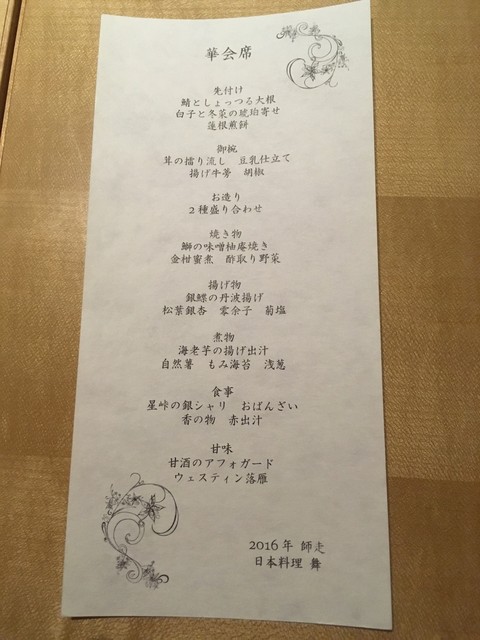 華会席
先付け
鯖としょっつる大根
白子と冬菜の琥珀寄せ
蓮根煎餅
御椀
茸の擂り流し　豆乳仕立て
揚げ牛蒡　胡椒
お造り
2種盛り合わせ
焼き物
鰤の味噌柚庵焼き
金柑蜜煮　酢取り野菜
揚げ物
銀鰈の丹波揚げ
松葉銀杏　零余子　菊塩
煮物
海老芋の揚げ出汁
自然薯　もみ海苔　浅葱
食事
星峠の銀シャリ　おばんざい
香の物　赤出汁
甘味
甘酒のアフォガード
ウェスティン落雁
2016年 師走
日本料理 舞